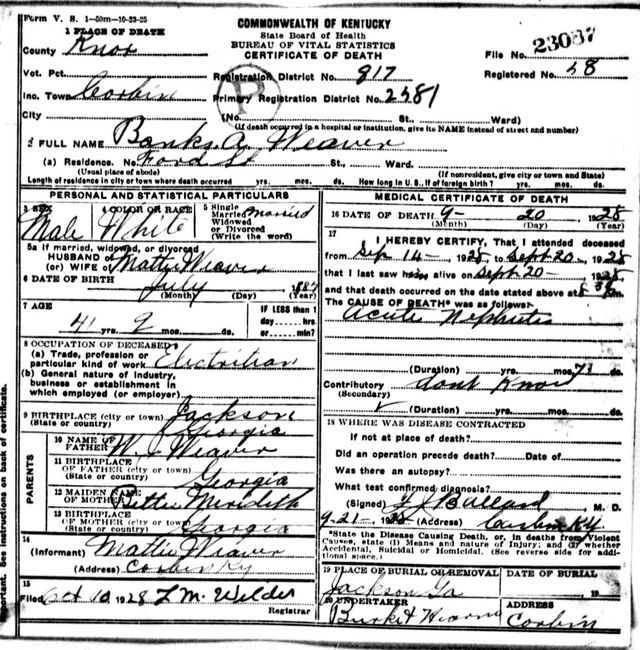 Form V. S. 1-50m-10-23-25
1 PLACE OF DEATH
County Knox
Vot. Pct.
Inc. Town Corbin
City
COMMONWEALTH OF KENTUCKY
State Board of Health
BUREAU OF VITAL STATISTICS
CERTIFICATE OF DEATH
File No. 23087
Registration District No. 917
Registered No. 58
Primary Registration District No. 2581
P
(No. St., Ward)
(If death occurred in a hospital or institution, give its NAME instead of street and number)
2 FULL NAME Banks A. Weaver
(a) Residence. No. Ford St St., Ward.
(Usual place of abode) (If nonresident, give city or town and State)
Length of residence in city or town where death occurred yrs. mos. ds. How long in U. S., if of foreign birth? yrs. mos. ds.
PERSONAL AND STATISTICAL PARTICULARS
3 SEX Male
4 COLOR OR RACE White
5 Single Married Widowed or Divorced (Write the word) Married
5a If married, widowed, or divorced
HUSBAND of
(or) WIFE of Mattie Weaver
6 DATE OF BIRTH July 1887
(Month) (Day) (Year)
7 AGE
41 yrs. 2 mos. ds.
IF LESS than 1 day, hrs. or min.?
8 OCCUPATION OF DECEASED
(a) Trade, profession or particular kind of work Electrician
(b) General nature of industry, business or establishment in which employed (or employer)
9 BIRTHPLACE (city or town) Jackson
(State or country) Georgia
PARENTS
10 NAME OF FATHER W. Weaver
11 BIRTHPLACE OF FATHER (city or town)
(State or country) Georgia
12 MAIDEN NAME OF MOTHER Merideth
13 BIRTHPLACE OF MOTHER (city or town)
(State or country) Georgia
14
(Informant) Mattie Weaver
(Address) Corbin Ky
15
Filed Oct 10, 1928 L. M. Welder
Registrar
MEDICAL CERTIFICATE OF DEATH
16 DATE OF DEATH 9- 20 1928
(Month) (Day) (Year)
17
I HEREBY CERTIFY, That I attended deceased
from Sep 14- 1928 Sept 20- 1928
that I last saw alive on Sept 20- 1928
and that death occurred on the date stated above at 8 m.
The CAUSE OF DEATH* was as follows:
Acute Nephritis
(Duration) yrs. mos. ds.
Contributory dont Know
(Secondary)
(Duration) yrs. mos. ds.
18 WHERE WAS DISEASE CONTRACTED
If not at place of death?
Did an operation precede death? Date of
Was there an autopsy?
What test confirmed diagnosis?
(Signed) Ballard M. D.
9-21-1928 (Address) Corbin Ky.
*State the Disease Causing Death, or, in deaths from Violent
Causes, state (1) Means and nature of Injury; and (2) whether
Accidental, Suicidal or Homicidal. (See reverse side for addi-
tional space.)
19 PLACE OF BURIAL OR REMOVAL Jackson Ga
DATE OF BURIAL 19
20 UNDERTAKER Burket Hearne
ADDRESS Corbin
important. See instructions on back of certificate.